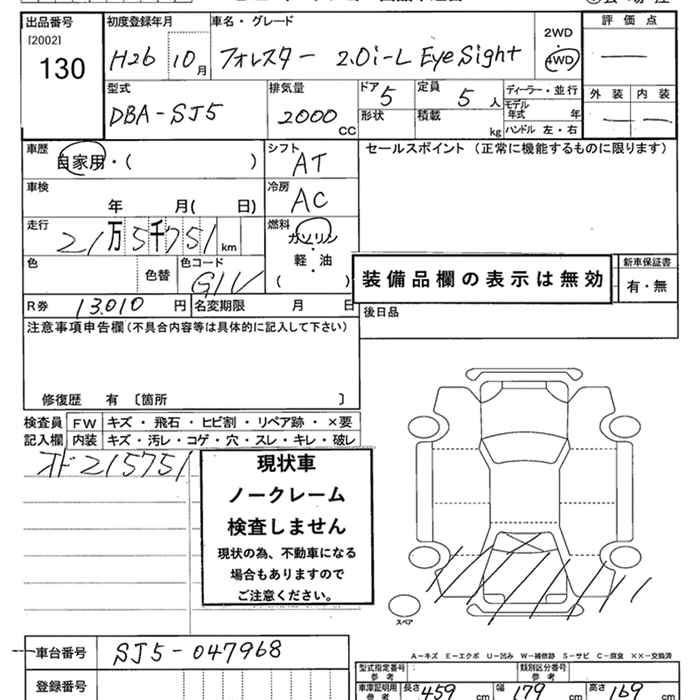 出品番号 初度登録年月 車名・グレード 評価点
[2002]
130 H26 10月 フォレスター 2.0i-L EyeSight 2WD 4WD —
型式 排気量 ドア 5 定員 5人 ディーラー・並行 外装 内装
DBA-SJ5 2000 CC 形状 積載 kg モデル年式 年 — —
ハンドル 左・右
車歴 シフト セールスポイント (正常に機能するものに限ります)
自家用・( ) AT
車検 冷房
年 月( 日) AC
走行 燃料
21万5千751km ガソリン
軽・油
( )
色 色替 色コード 装備品欄の表示は無効 新車保証書
G1V 有・無
R券 13,010円 名変期限 月 日 後日品
注意事項申告欄(不具合内容等は具体的に記入して下さい)
修復歴 有 〔箇所 〕
検査員 FW キズ・飛石・ヒビ割・リペア跡・×要
記入欄 内装 キズ・汚レ・コゲ・穴・スレ・キレ・破レ
オド215751
現状車
ノークレーム
検査しません
現状の為、不動車になる
場合もありますので
ご注意ください。
スペア
A-キズ E-エクボ U-凹み W-補修跡 S-サビ C-腐食 XX-交換済
車台番号 SJ5-047968
型式指定番号 参考 類別区分番号 参考
登録番号 車庫証明用 参考 長さ 459 cm 幅 179 cm 高さ 169 cm